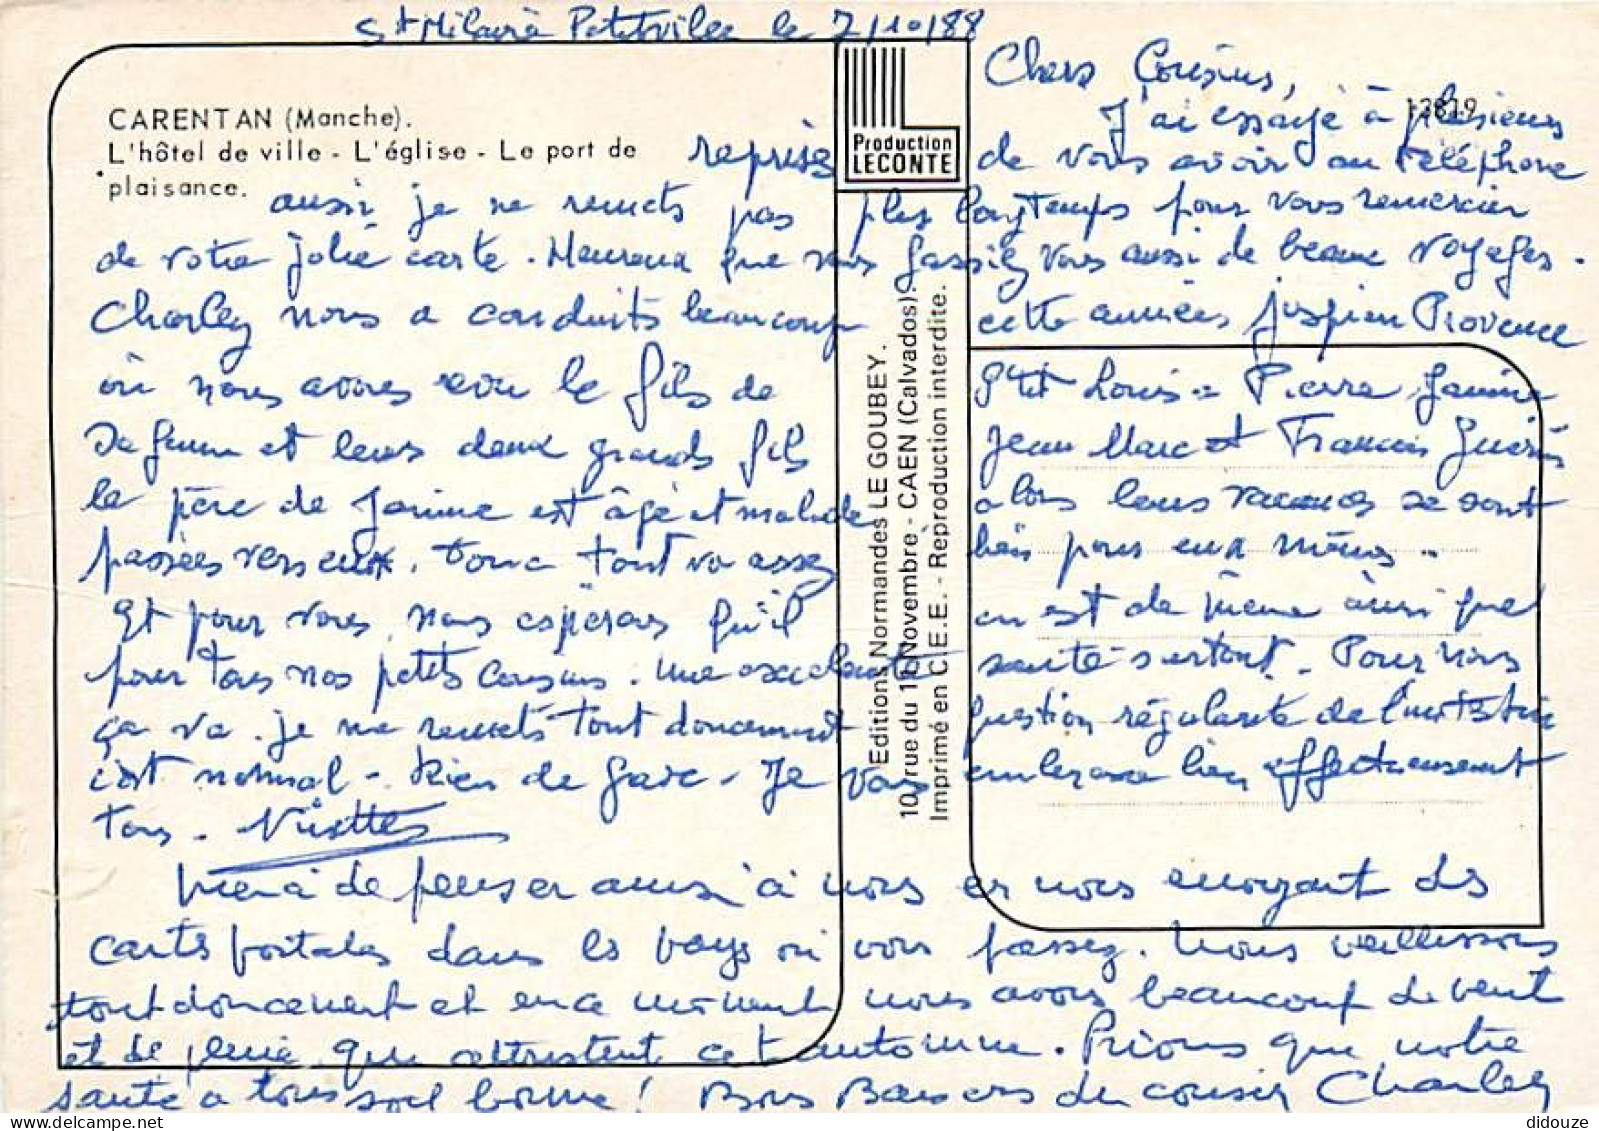 St Hilaire Petitville le 7/10/88
CARENTAN (Manche).
L'hôtel de ville - L'église - Le port de
plaisance.
Production
LECONTE
13819
Editions Normandes LE GOUBEY.
10, rue du 11 Novembre - CAEN (Calvados).
Imprimé en C.E.E. - Reproduction interdite.
Chers Cousins,
J'ai essayé à plusieurs
reprises de vous avoir au téléphone
aussi je ne remets pas plus longtemps pour vous remercier
de votre jolie carte. Heureux que vous fassiez vous aussi de beaux voyages.
Charley nous a conduits beaucoup cette année jusqu'en Provence
où nous avons revu le fils de P'tit Louis - Pierre Janine
sa femme et leurs deux grands fils Jean Marc et Francis Guérin
le père de Janine est âgé et malade alors leurs vacances se sont
passées vers eux. Donc tout va assez bien pour eux mêmes.
Et pour vous, nous espérons qu'il en est de même ainsi que
pour tous nos petits cousins. Une excellente santé surtout. Pour nous
ça va. je me remets tout doucement question régularité de l'intestin
c'est normal - Rien de grave - Je vous embrasse bien affectueusement
tous. Ninette
Merci de penser aussi à nous en nous envoyant des
cartes postales dans les pays où vous passez. Nous vieillissons
tout doucement et en ce moment nous avons beaucoup de vent
et de pluie que attristent cet automne. Prions que notre
santé à tous soit bonne! Bons Baisers du cousin Charley
didouze